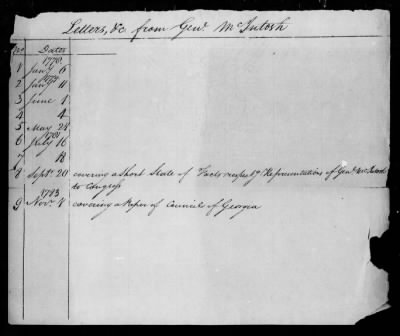 Letters, &c from Genl. McIntosh
No. Dates
1776
1 Jany 6
2 Jany 11
3 June 1
4 4
5 May 28
1781
6 July 16
7 18
8 Sept. 20 covering a Short State of Facts respectg. Representations of Genl. McIntosh
to Congress
1783
9 Novr. 4 covering a Paper of Council of Georgia